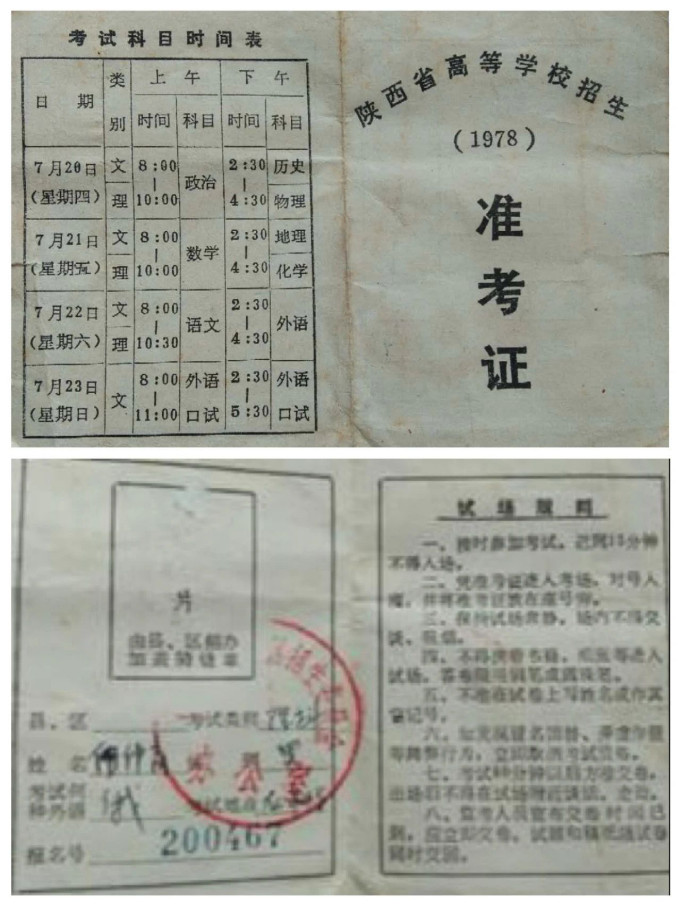 考试科目时间表
日期 类别 上午 下午
时间 科目 时间 科目
7月20日 文 8:00 政治 2:30 历史
(星期四) 理 10:00 4:30 物理
7月21日 文 8:00 数学 2:30 地理
(星期五) 理 10:00 4:30 化学
7月22日 文 8:00 语文 2:30 外语
(星期六) 理 10:30 4:30
7月23日 文 8:00 外语 2:30 外语
(星期日) 11:00 口试 5:30 口试
陕西省高等学校招生
(1978)
准考证
片
由县、区招办
加盖骑缝章
县、区 考试类别
姓名 性别 男
考试何
种外语
报名号 200467
办公室
试场规则
一、按时参加考试。迟到15分钟
不得入场。
二、凭准考证进入考场,对号入
座,并将准考证放在座号旁。
三、保持试场肃静,场内不得交
谈、吸烟。
四、不得携带书籍、纸张等进入
试场。答卷
五、不准在试卷上写姓名或作其
它记号。
六、如发现
等舞弊行为,立即取消考试资格。
七、考试 分钟以后方准交卷。
出场后不得在试场附近谈话、走动。
八、监考人员宣布交卷时间已
到,应立即交卷。试题和稿纸随试卷
同时交回。